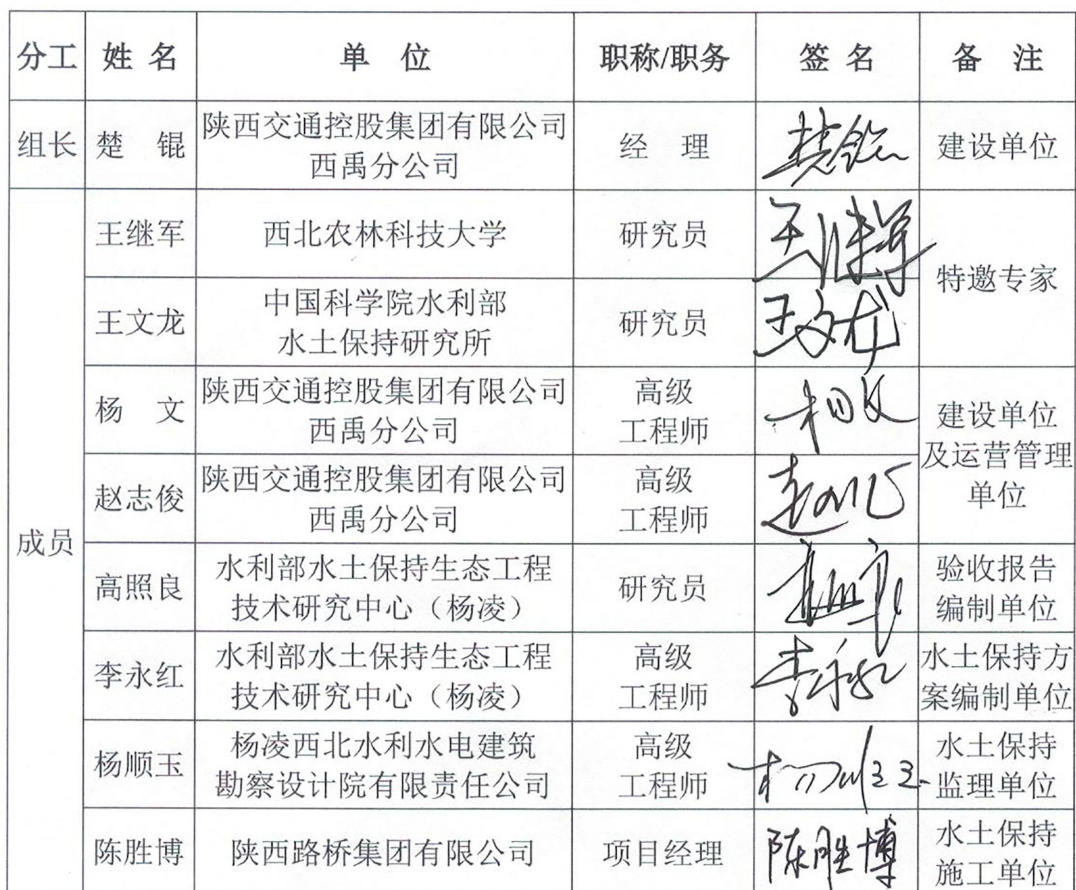 分工 姓 名 单 位 职称/职务 签 名 备 注
组长 楚 锟 陕西交通控股集团有限公司 西禹分公司 经 理 楚锟 建设单位
成员
王继军 西北农林科技大学 研究员 王继军 特邀专家
王文龙 中国科学院水利部 水土保持研究所 研究员 王文龙
杨 文 陕西交通控股集团有限公司 西禹分公司 高级 工程师 杨文 建设单位 及运营管理 单位
赵志俊 陕西交通控股集团有限公司 西禹分公司 高级 工程师
高照良 水利部水土保持生态工程 技术研究中心（杨凌） 研究员 高照良 验收报告 编制单位
李永红 水利部水土保持生态工程 技术研究中心（杨凌） 高级 工程师 李永红 水土保持方 案编制单位
杨顺玉 杨凌西北水利水电建筑 勘察设计院有限责任公司 高级 工程师 杨顺玉 水土保持 监理单位
陈胜博 陕西路桥集团有限公司 项目经理 陈胜博 水土保持 施工单位